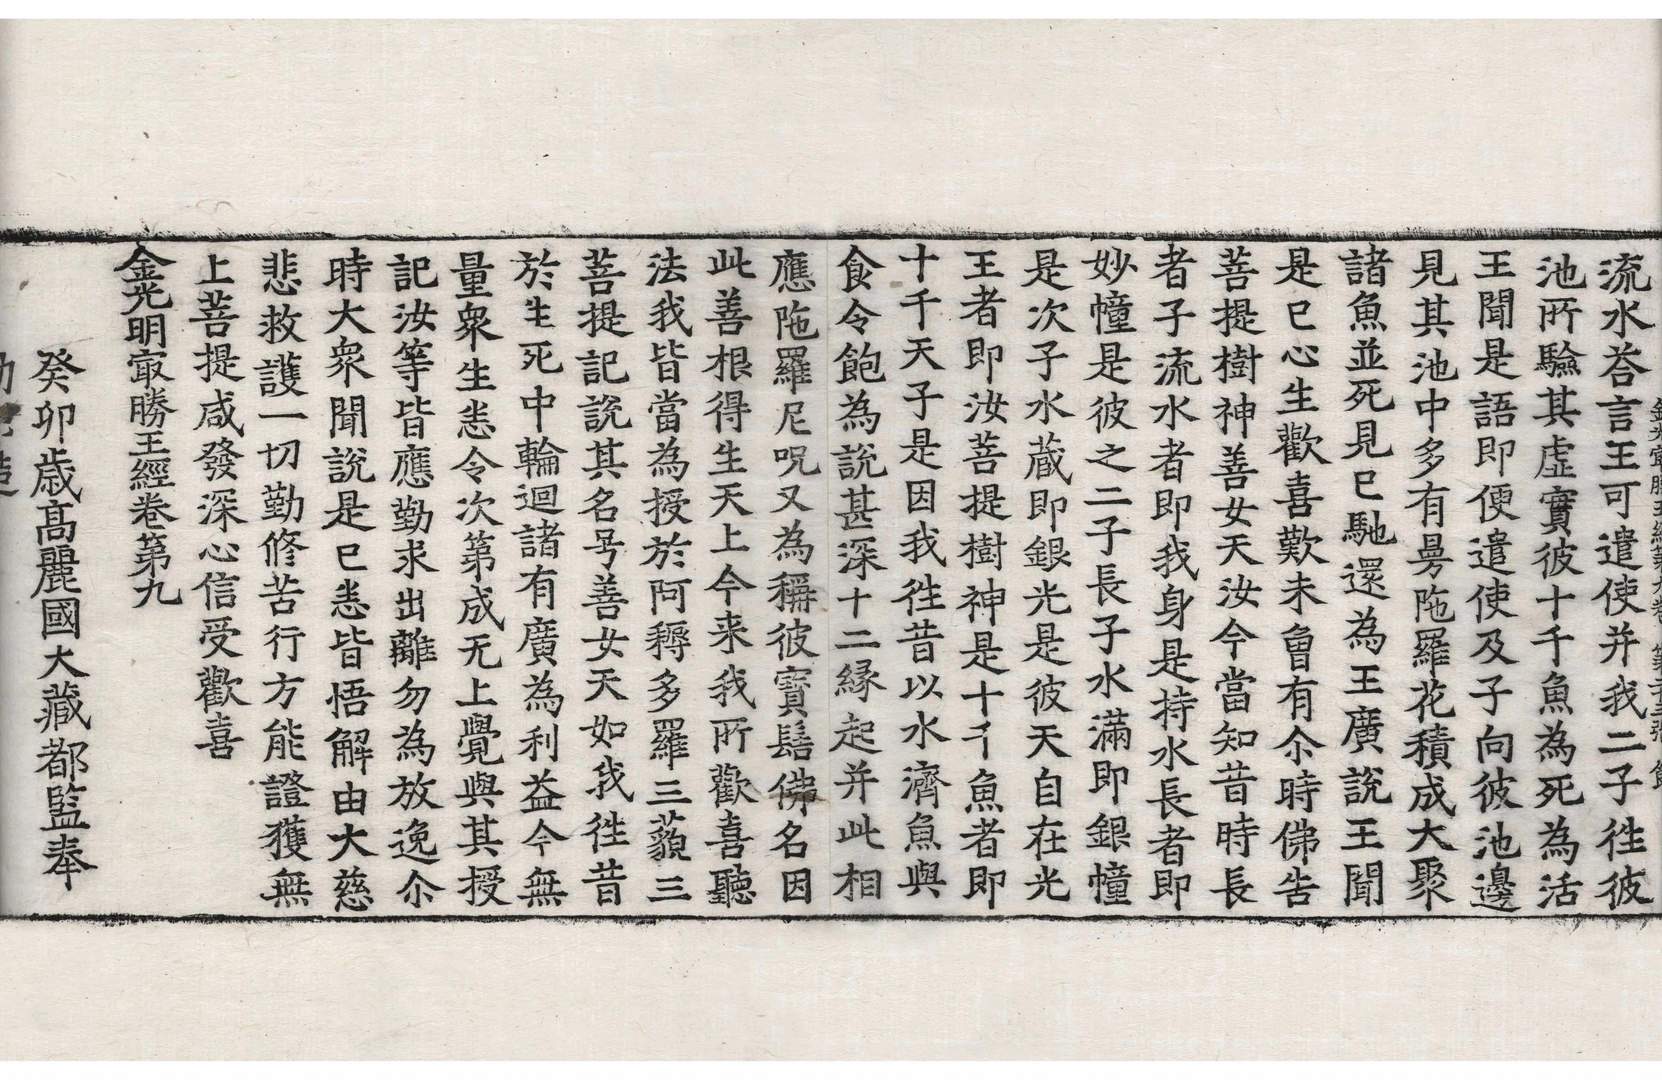 金光㝡勝王經第九卷 第二十三張 食
流水荅言王可遣使并我二子徃彼
池所驗其虛實彼十千魚為死為活
王聞是語即便遣使及子向彼池邊
見其池中多有曼陁羅花積成大聚
諸魚並死見已馳還為王廣說王聞
是已心生歡喜歎未曾有尒時佛告
菩提樹神善女天汝今當知昔時長
者子流水者即我身是持水長者即
妙幢是彼之二子長子水滿即銀幢
是次子水蔵即銀光是彼天自在光
王者即汝菩提樹神是十千魚者即
十千天子是因我徃昔以水濟魚與
食令飽為說甚深十二緣起并此相
應陁羅尼呪又為稱彼寶髻佛名因
此善根得生天上今来我所歡喜聽
法我皆當為授於阿耨多羅三藐三
菩提記說其名号善女天如我徃昔
於生死中輪迴諸有廣為利益今無
量眾生悉令次第成无上覺與其授
記汝等皆應勤求出離勿為放逸尒
時大眾聞說是已悉皆悟解由大慈
悲救護一切勤修苦行方能證獲無
上菩提咸發深心信受歡喜
金光明㝡勝王經卷第九
癸卯歳髙麗國大藏都監奉